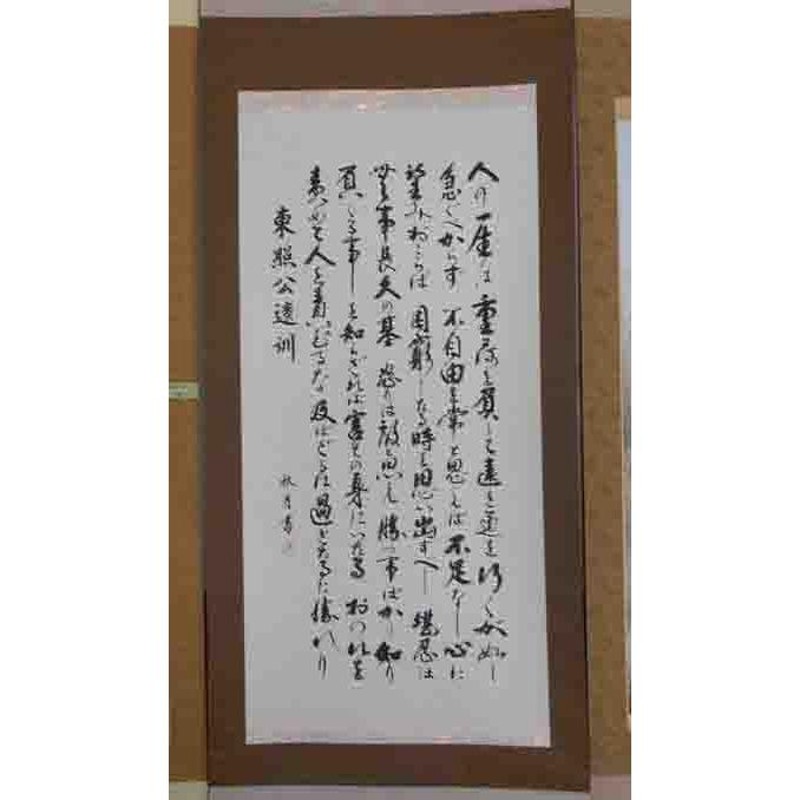 人の一生は重荷を負て遠き道を行くが如し
急ぐべからす 不自由を常と思へは不足なし 心に
望みおこらは 困窮したる時を思ひ出すへし 堪忍は
無事長久の基 怒りは敵と思へ 勝つ事ばかり知り
負くる事を知らざれは害その身にいたる おのれを
責めて人を責むるな 及はざるは過ぎたるに勝れり
東照公遺訓
秋月書